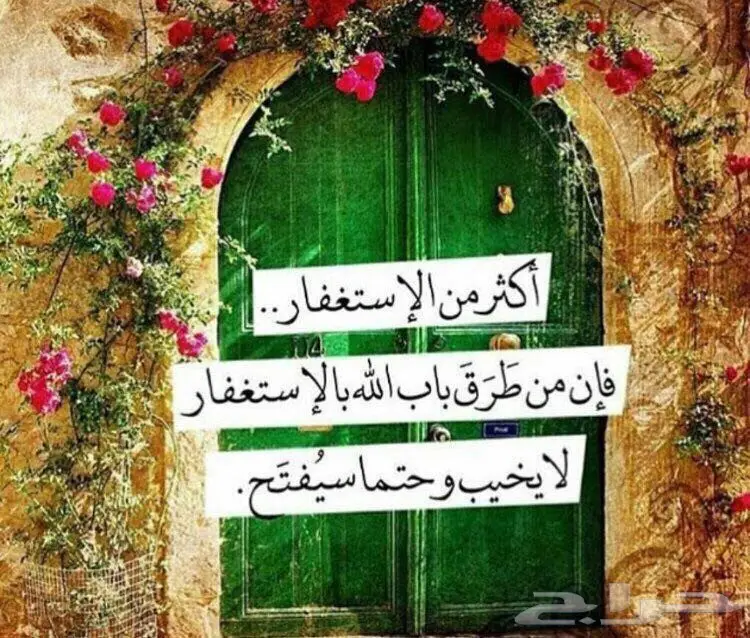 أكثر من الإستغفار..
04
فإن من طَرَقَ باب الله بالإستغفار
لا يخيب وحتما سيُفتَح.
حراج